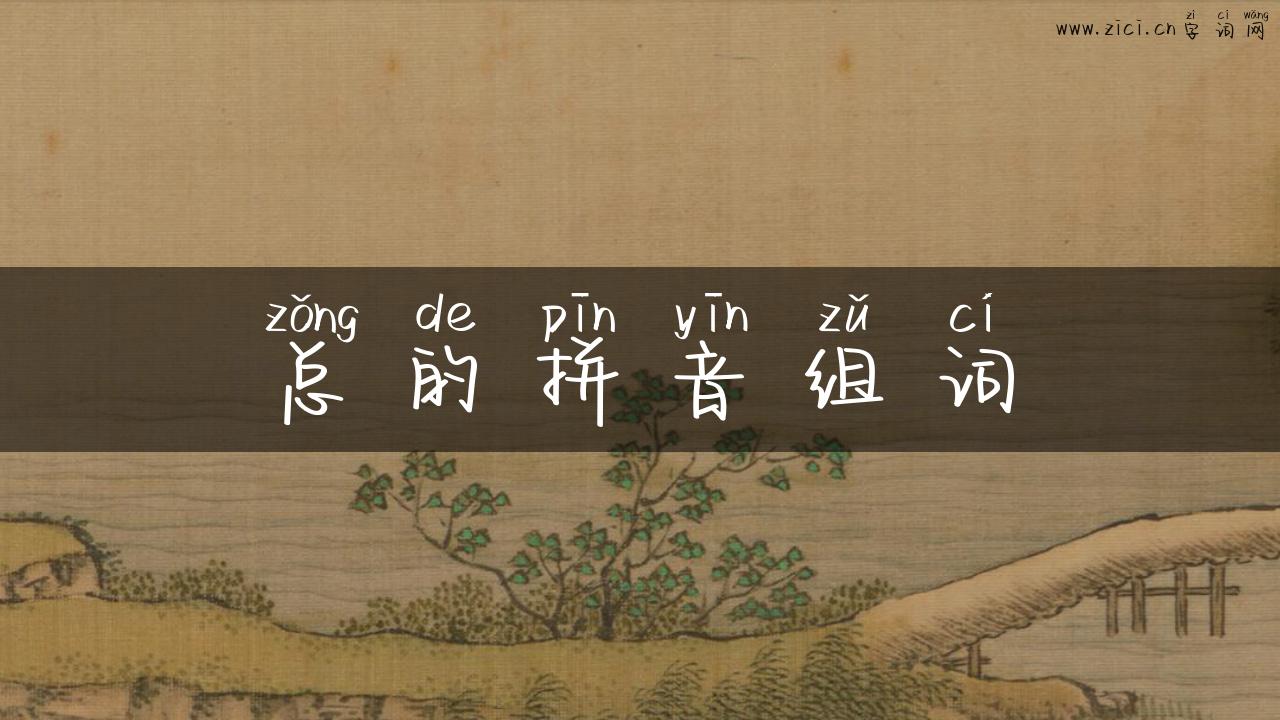 zì cí wǎng
www.zici.cn 字词网
zǒng de pīn yīn zǔ cí
总的拼音组词